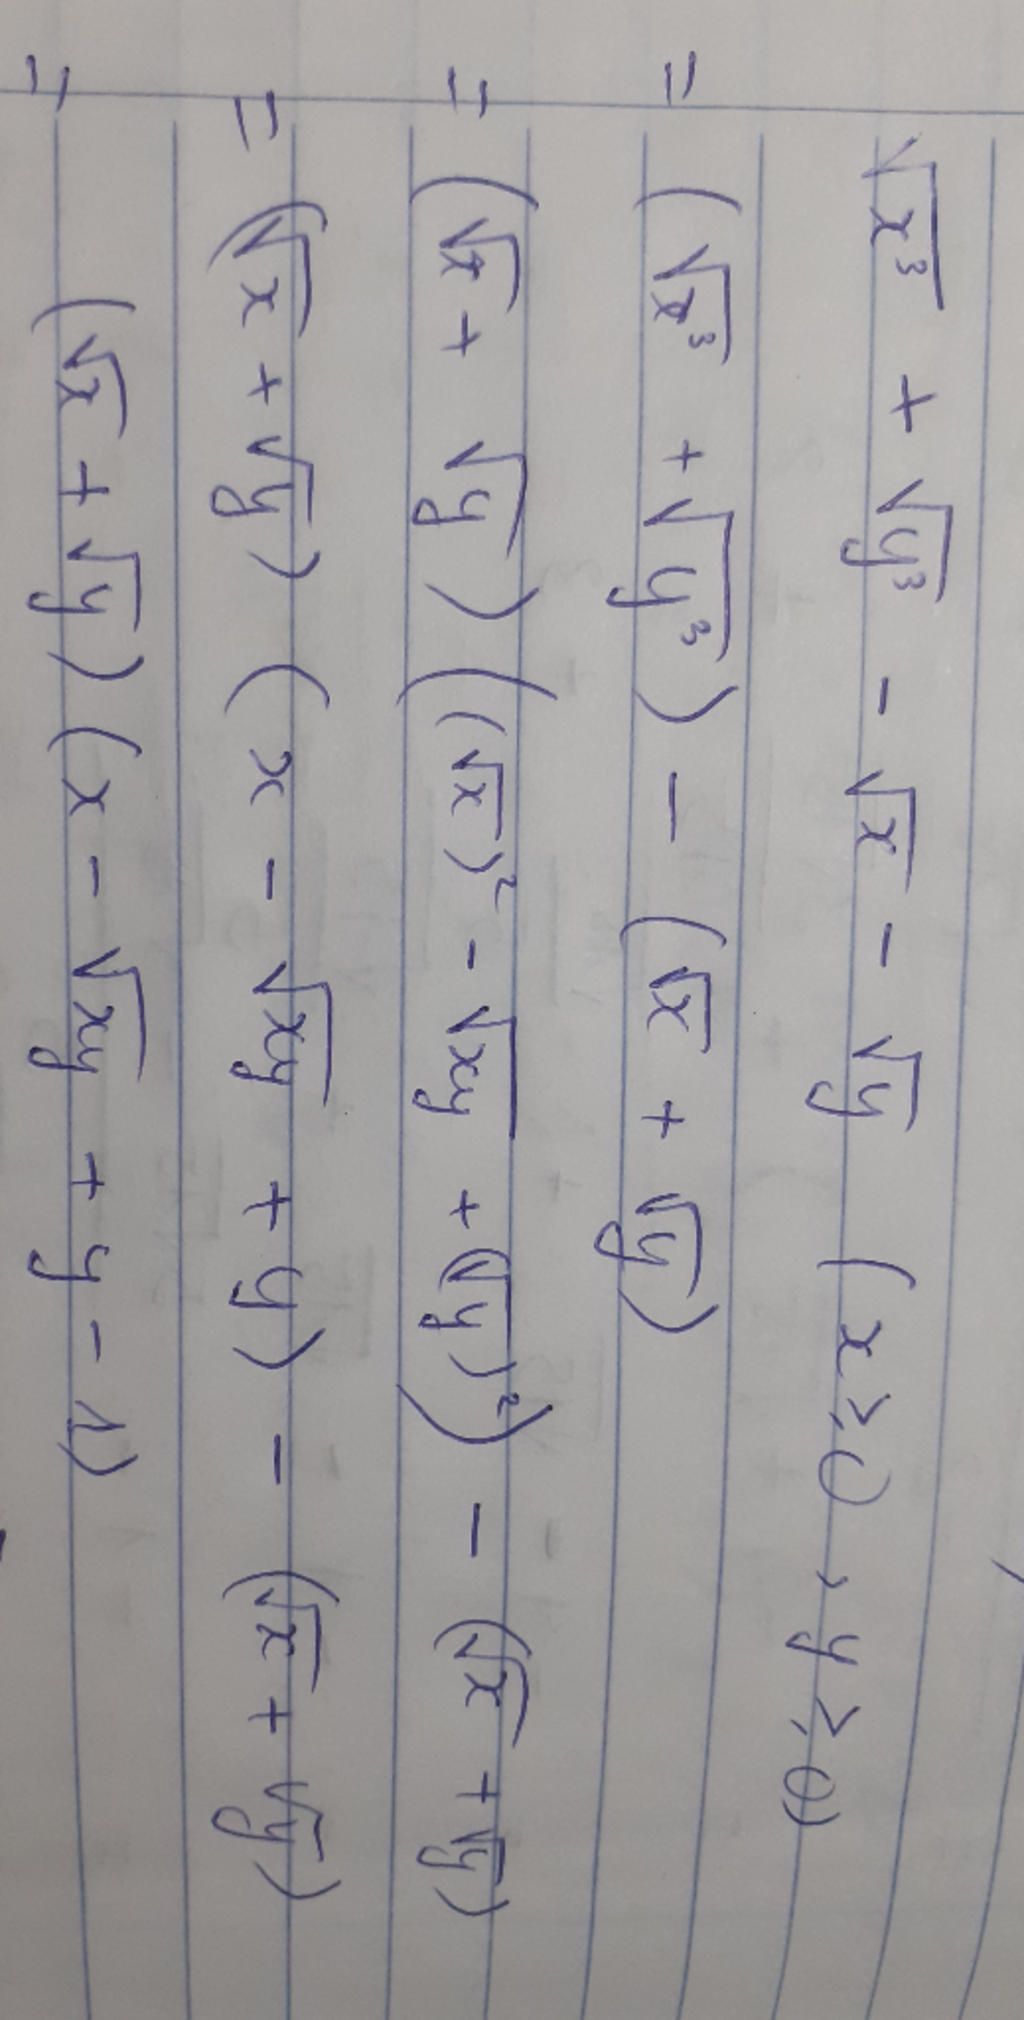 √x³ + √y³ - √x - √y (x ≥ 0, y ≥ 0)
= (√x³ + √y³) - (√x + √y)
= (√x + √y) ((√x)² - √xy + (√y)²) - (√x + √y)
= (√x + √y) (x - √xy + y) - (√x + √y)
= (√x + √y) (x - √xy + y - 1)